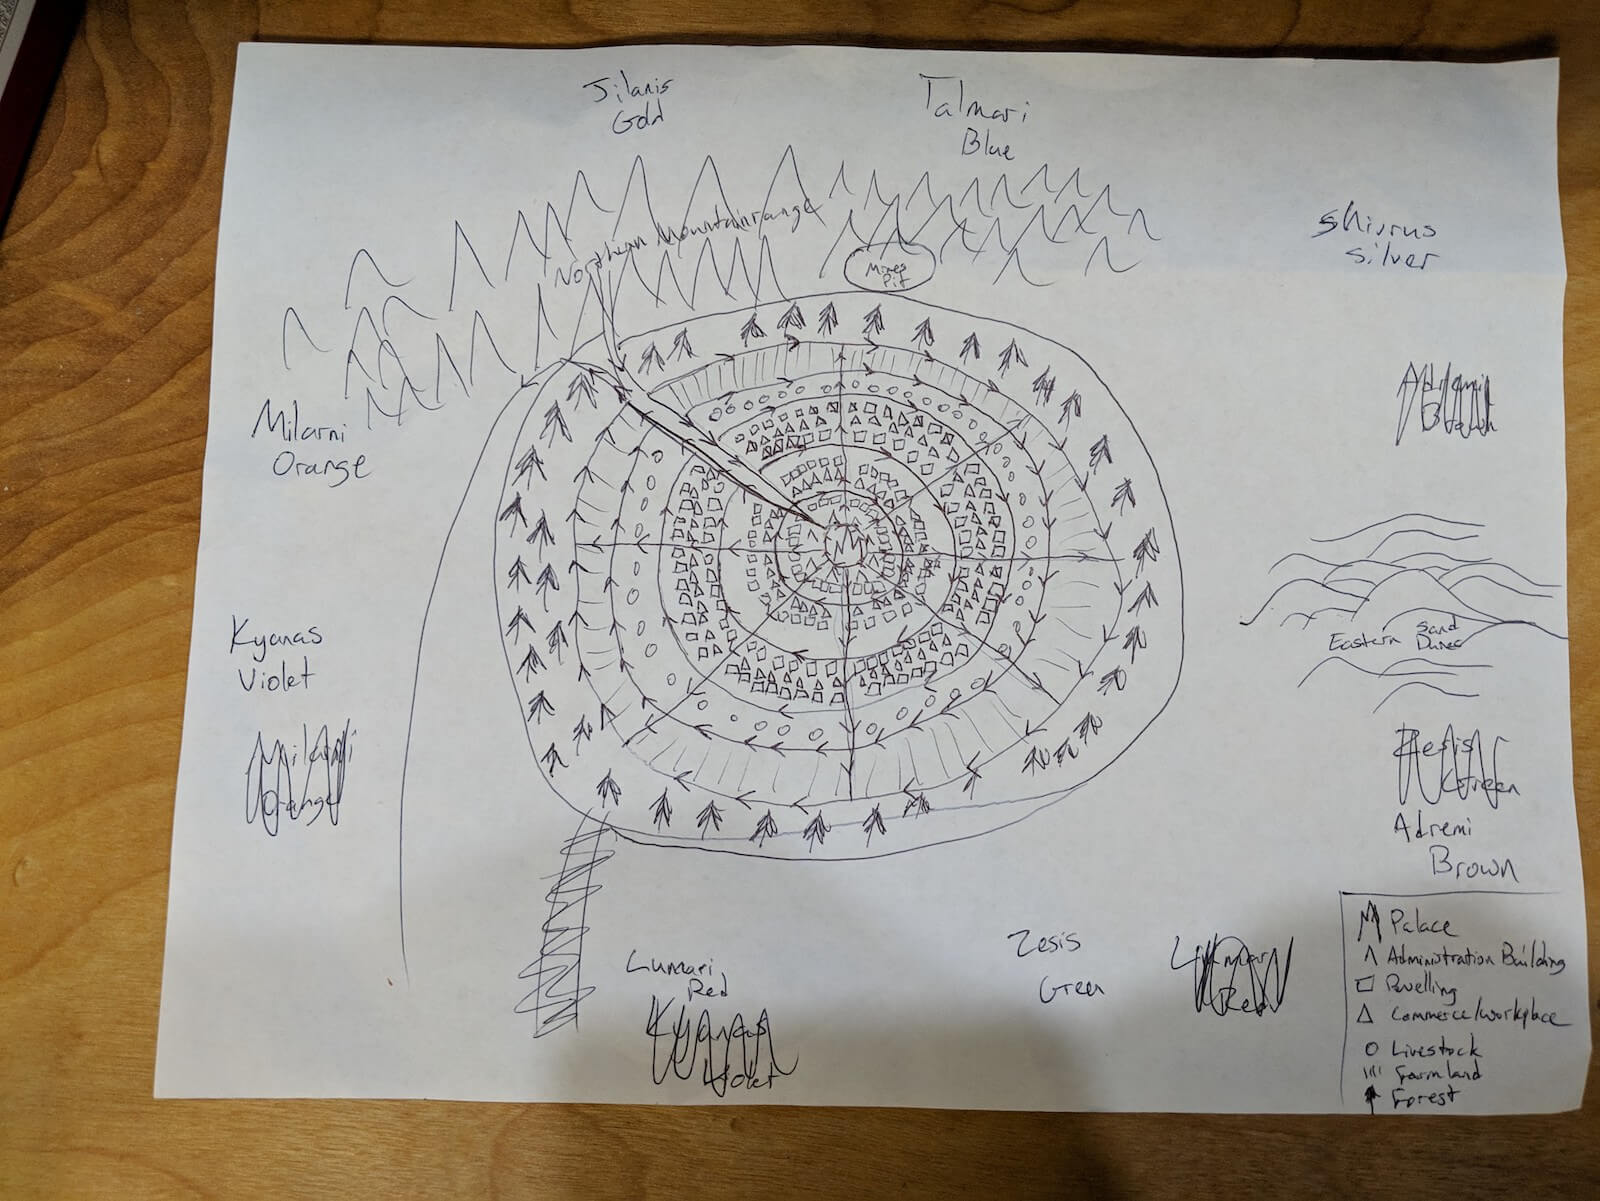 Jilanis
Gold
Talmari
Blue
Shivrus
Silver
Northern Mountainrange
Mines
Pit
Milarni
Orange
Kyanas
Violet
Milarni
Orange
Eastern Sand
Dunes
Zesis
Green
Adremi
Brown
Lumari
Red
Kyanas
Violet
Zesis
Green
Lumari
Red
Palace
Administration Building
Dwelling
Commerce/workplace
Livestock
Farmland
Forest